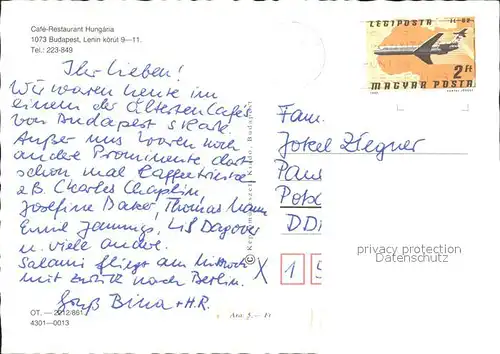 Café-Restaurant Hungária
1073 Budapest, Lenin körút 9—11.
Tel.: 223-849
Ihr Lieben!
Wir waren heute im
einem der Ältesten Cafés
von Budapest
Außer uns waren noch
andere Prominente dort
schon mal Kaffee
z.B. Charles Chaplin,
Josefine Baker, Thomas Mann
Emil Jannings, Lil Dagover
u. viele andre.
Salami fliegt am Mittwoch
mit zurück nach Berlin.
Gruß Bina + H.R.
OT. — 2912/861
4301—0013
© Képzőművészeti Kiadó, Budapest
LÉGIPOSTA
2 Ft
MAGYAR POSTA
Fam.
Jokel Ziegner
Paus
Pots
DD
X 1 5
privacy protection
Datenschutz